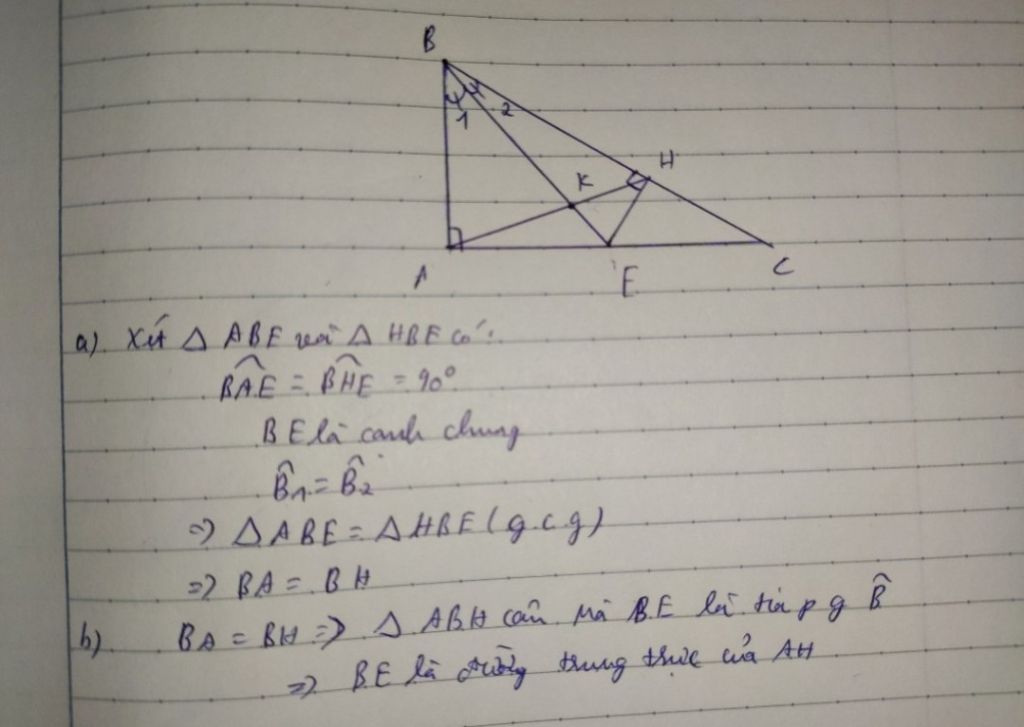 B
1
2
H
K
A
E
C
a) Xét Δ ABE và Δ HBE có:
$\widehat{BAE}$ = $\widehat{BHE}$ = 90°
BE là cạnh chung
$\widehat{B}_1$ = $\widehat{B}_2$
=> Δ ABE = Δ HBE (g.c.g)
=> BA = BH
b) BA = BH => Δ ABH cân mà BE là tia p g $\widehat{B}$
=> BE là đường trung trực của AH